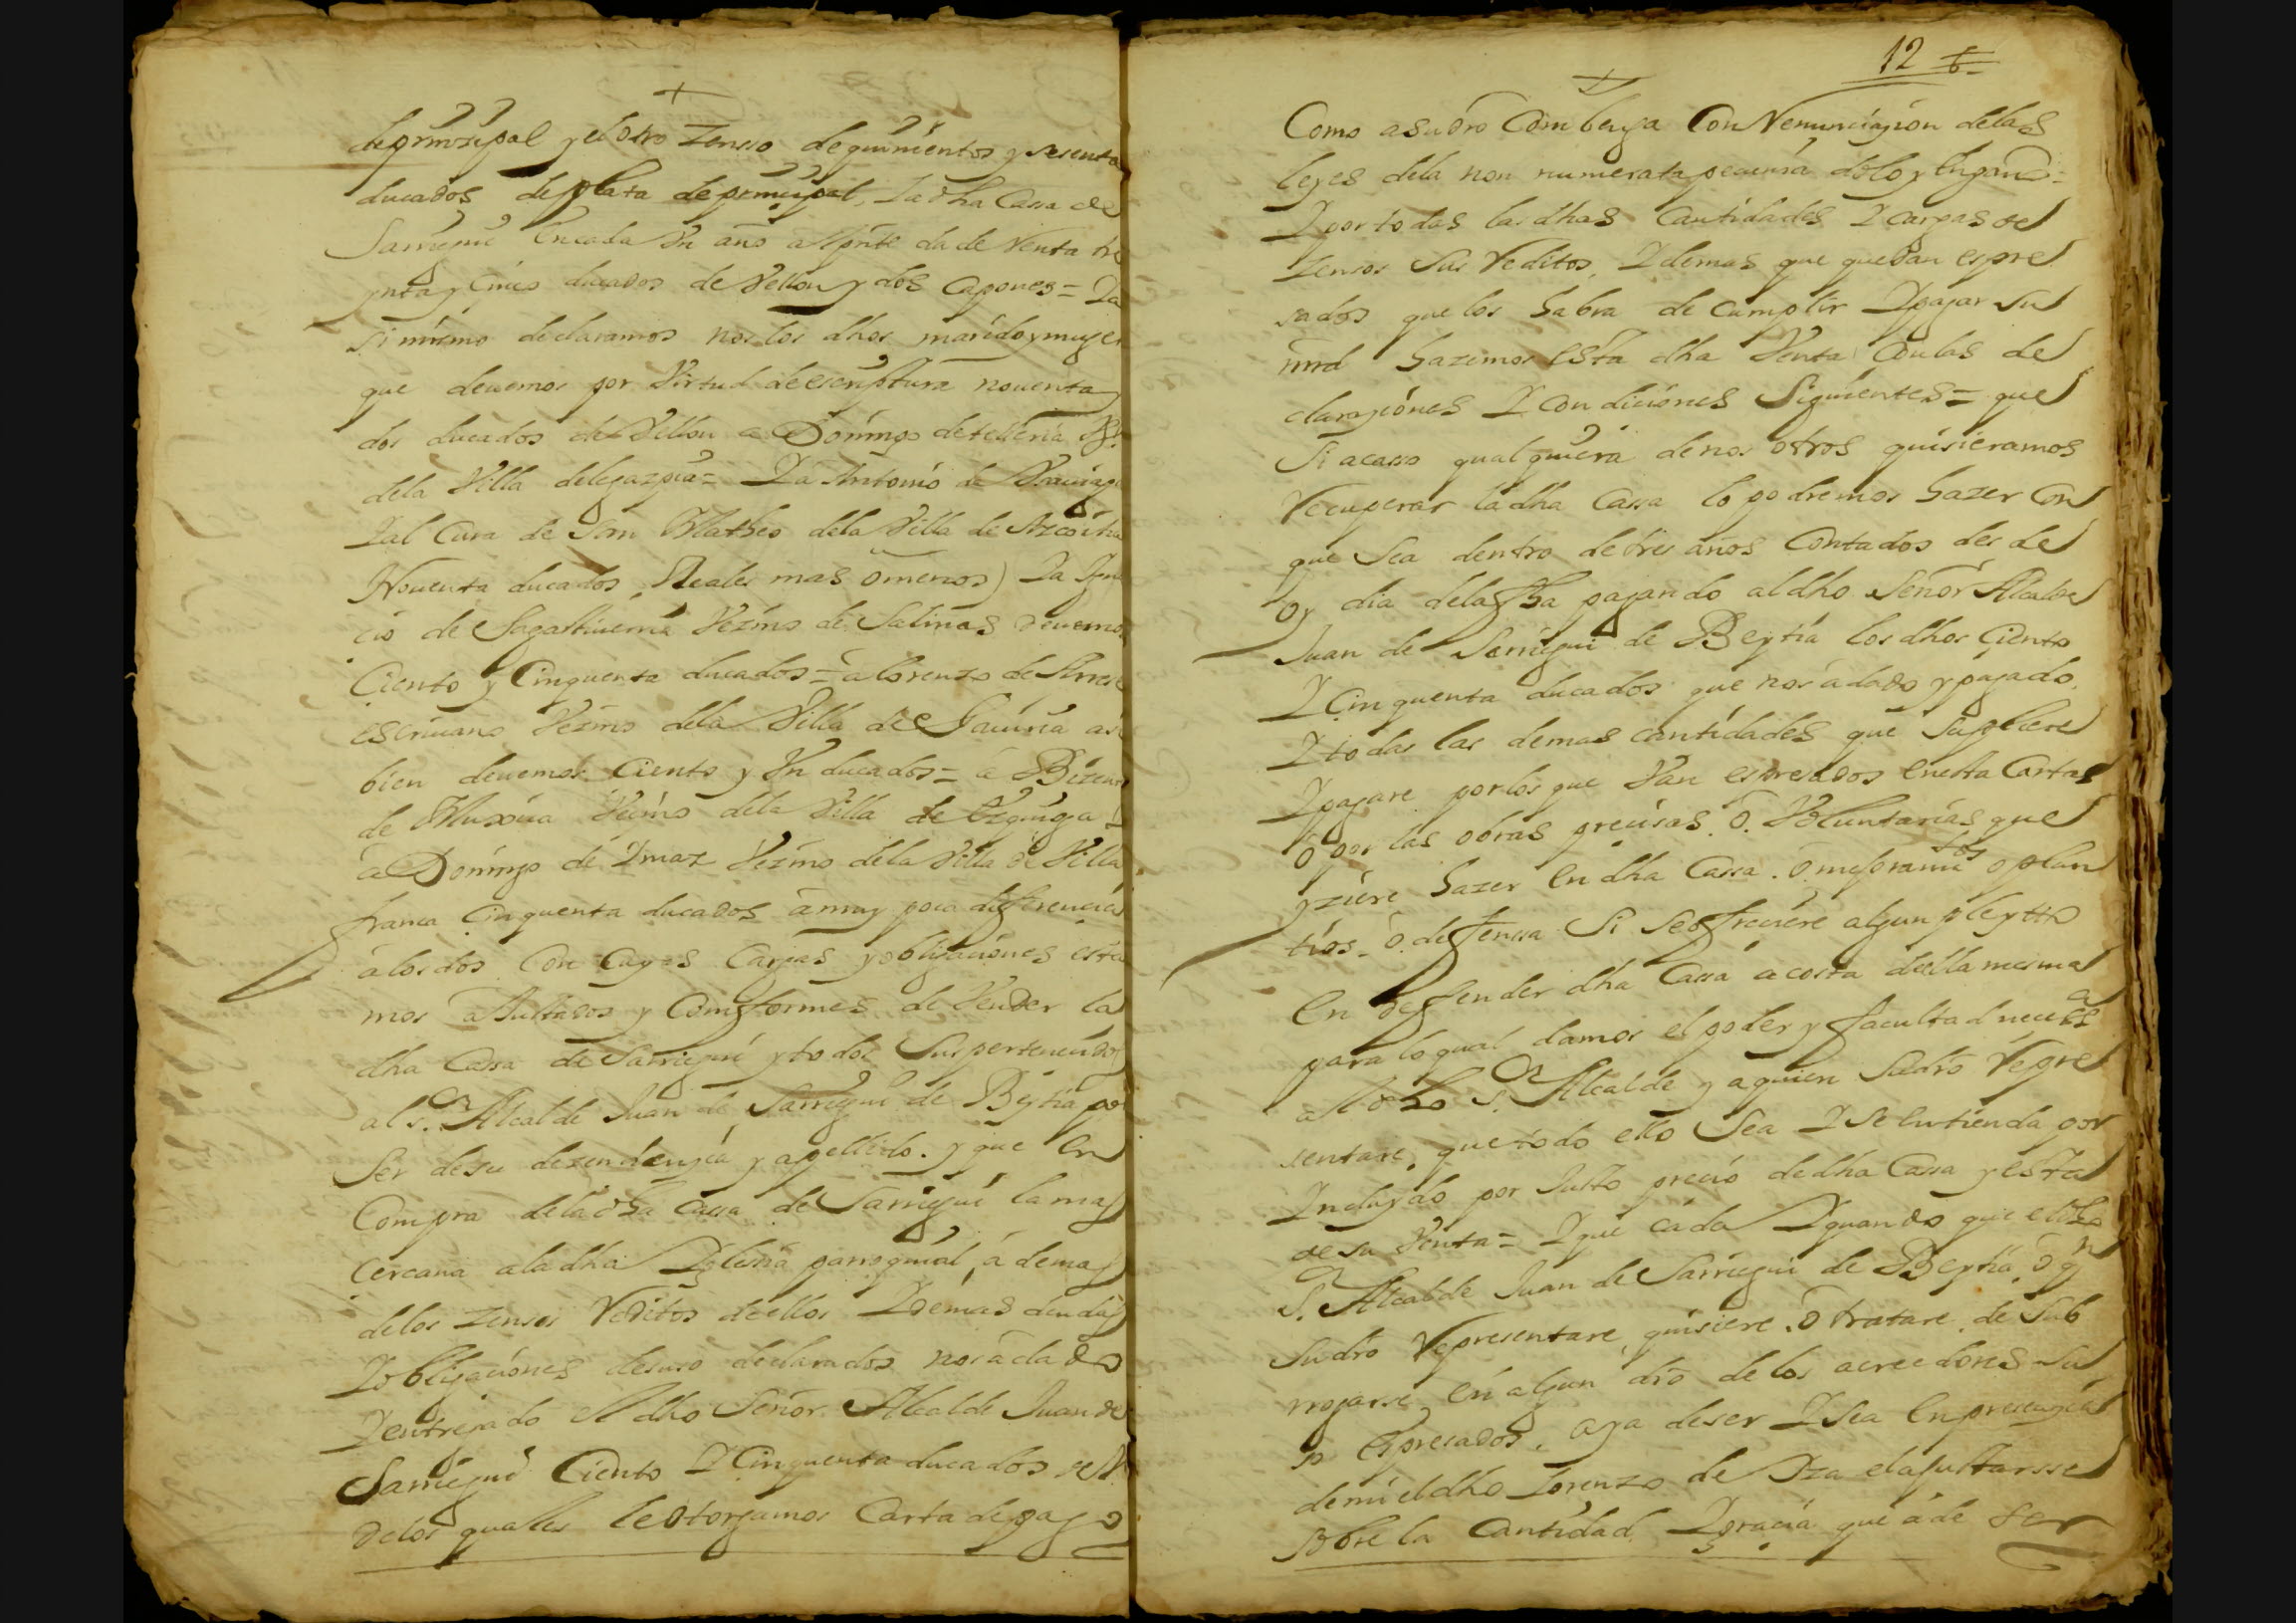 +
de prinzipal y el otro Zenso de quinientos y sesenta
ducados de plata de principal, Ja dha Cassa de
Sarriegui En cada Un año al press.te da de Renta tre
ynta y Cinco ducados de Vellon y dos Capones = Ja
si mismo declaramos nos los dhos marido y muger
que devemos por Virtud de escriptura noventa y
dos ducados de Vellon a Domingo de telleria
dela Villa de legazpia = Ja Antonio de
Jal Cura de San Matheo dela Villa de Azcoitia
Noventa ducados, Reales mas omenos) Ja Igna
cio de Vezino de Salinas devemos
Ciento y Cinquenta ducados = a lorenzo de
escrivano Vezino dela Villa de Gaviria asi
bien devemos Ciento y Un ducados = a Bizente
de Muxica Vezino dela Villa de
a Domingo de Ymaz Vezino dela Villa de Villa
franca Cinquenta ducados a muy poca diferencia
alos dos Con Cuyas Cargas y obligaciones esta
mos a Justados y Comformes de Vender la
dha Cassa de Sarriegui y todos Sus pertenecidos
al S.r Alcalde Juan de Sarriegui de Beytia por
Ser de su dezendenzia y apellido. y que En
Compra dela dha Cassa de Sarriegui la mas
Cercana ala dha Iglesia parroquial, a demas
delos Zensos Reditos de ellos Idemas deudas
Jobligaciones desuso declarados nos a dado
Jentregado el dho Señor Alcalde Juan de
Sarriegui Ciento Y Cinquenta ducados de
delos quales le otorgamos Carta de pago
12
+
Como a su dro Combenga Con Renunciazion delas
leyes dela non numerata pecunia dolo y Engaño =
I por todas las dhas Cantidades I cargas de
Zensos Sus Reditos, I demas que quedan espre
sados que los habra de cumplir I pagar Su
mrd hazemos esta dha Venta Con las de
claraziones I Condiciones Siguientes = que
Si acasso qualquiera de nos otros quisieramos
Recuperar la dha Cassa lo podremos hazer Con
que Sea dentro de tres años Contados des de
oy dia dela fha pagando al dho Señor Alcalde
Juan de Sarriegui de Beytia los dhos Ciento
I Cinquenta ducados que nos a dado y pagado
I todas las demas cantidades que Supliere
I pagare por los que Van espresados En esta Carta
o por las obras precisas. o. Voluntarias que
yziere hazer En dha Cassa. o. mejoramitos o plan
tios. o. defensa Si Se ofreciere algun pleytto
En defender dha Cassa a costa della mesma
para lo qual damos el poder y facultad necess.a
al dho S.r Alcalde y a quien Su dro Repre
sentare, que todo ello Sea I Se Entienda por
Incluydo por Justo precio de dha Cassa y esta
de su Venta = I que cada I quando que el dho
S.r Alcalde Juan de Sarriegui de Beytia, o q.n
Su dro Representare, quisiere. o tratare. de Sub
rrogarse En algun dro de los acreedores Su
so Espresados. aya de ser I Sea En presenzia
de mi el dho Lorenzo de Iza el ajustarsse
sobre la Cantidad I gracia que a de ser